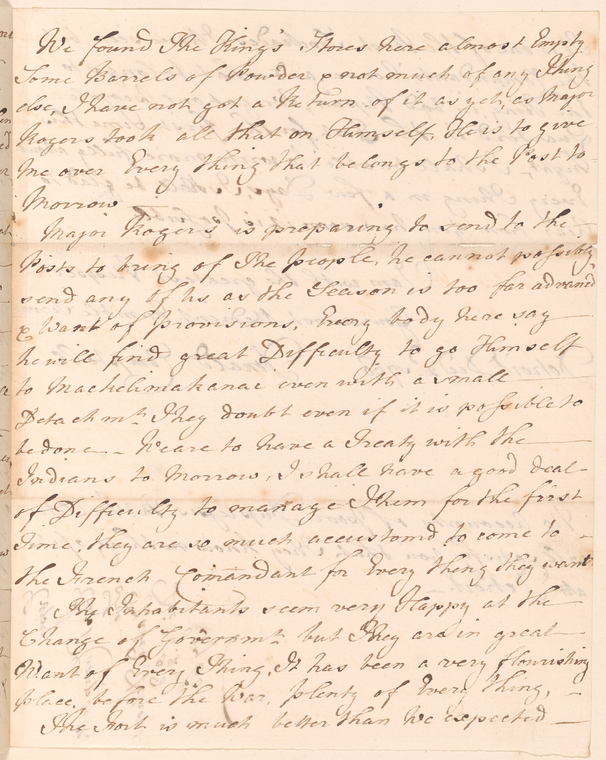 We found The King's Stores here almost Empty
Some Barrels of Powder & not much of any Thing
else, I have not got a Return of it as yet, as Major
Rogers took all that on Himself, He is to give
me over Every thing that belongs to the Post to
Morrow
Major Rogers is preparing to send to the
Posts to bring of The people, he cannot possibly
send any of us as the Season is too far advanc'd
& Want of provisions, Every body here say
he will find great Difficulty to go Himself
to Machelimakanac even with a small
Detachmt. They doubt even if it is possible to
be done — We are to have a Treaty with the
Indians to Morrow, I shall have a good deal
of Difficulty to manage Them for the first
Time, they are so much accustom'd to come to
the French Comandant for Every thing they want
The Inhabitants seem very Happy at the
Change of Governmt but They are in great
Want of Every Thing, It has been a very flourishing
place, before the War, plenty of Every thing, —
The Fort is much better than We expected —